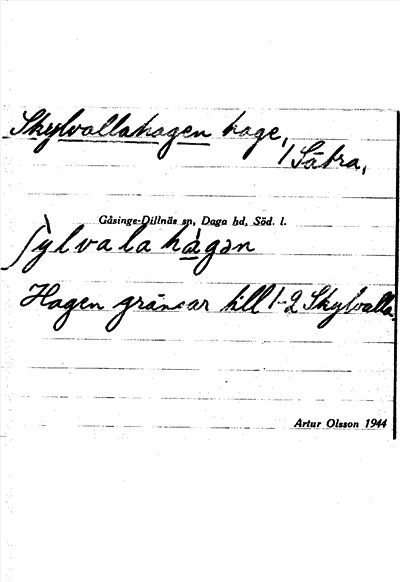 Skylvallahagen hage,
1/ Sätra,
Gåsinge-Dillnäs sn, Daga hd, Söd. l.
ʃỳlvala hàgən
Hagen gränsar till 1-2 Skylvalla.
Artur Olsson 1944